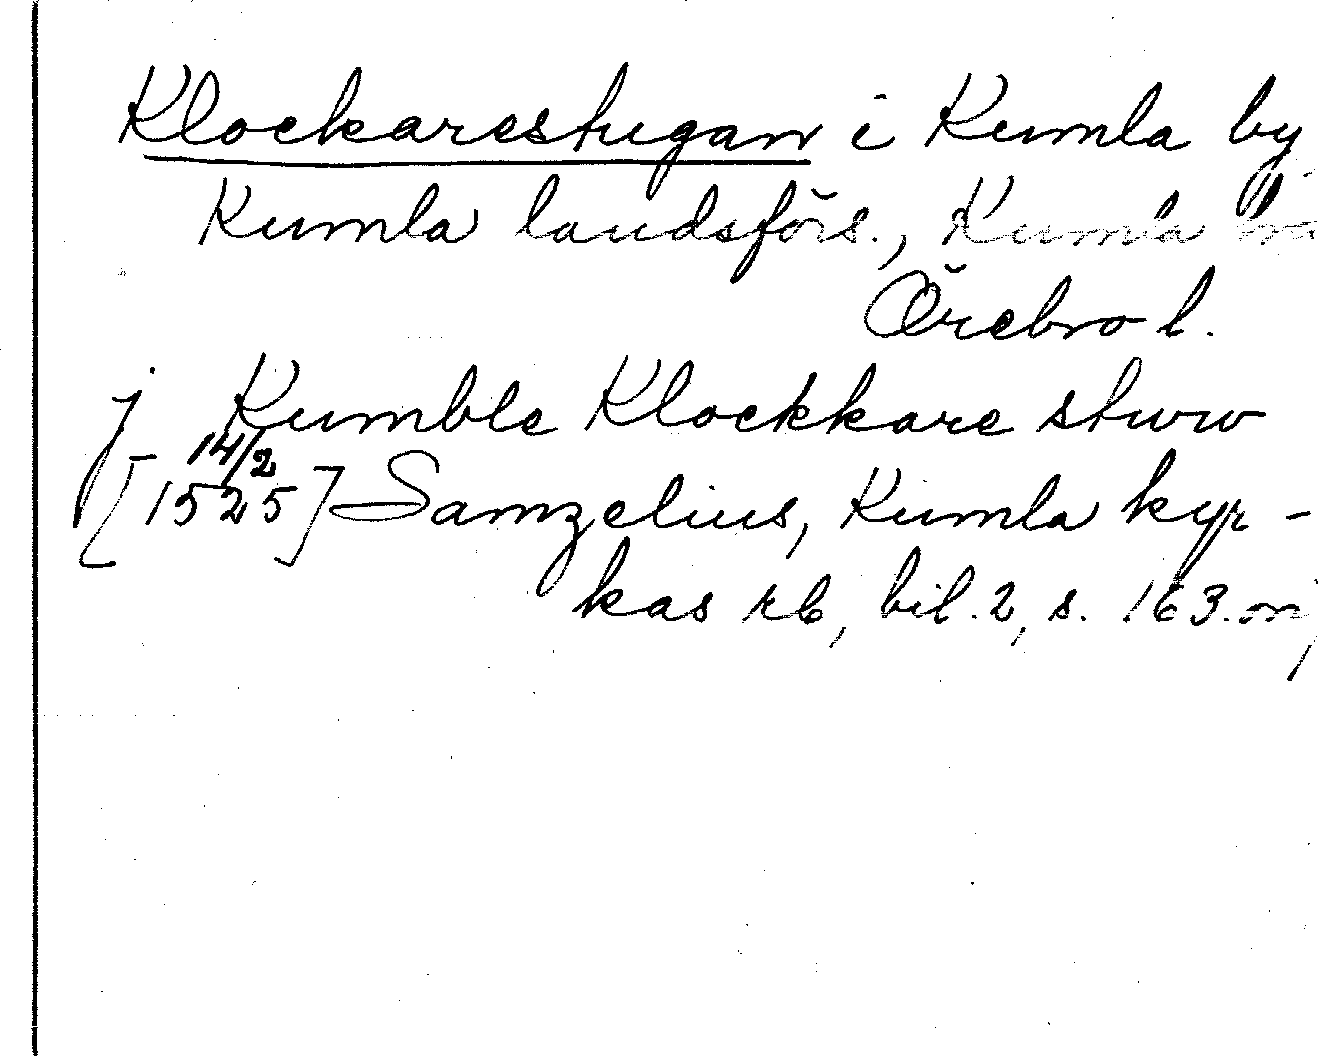 Klockarestugan i Kumla by
Kumla landsförs., Kumla
Örebro l.
j Kumble Klockkare stuw
14/2
[1525] Samzelius, Kumla kyr-
kas rb, bil. 2, s. 163.